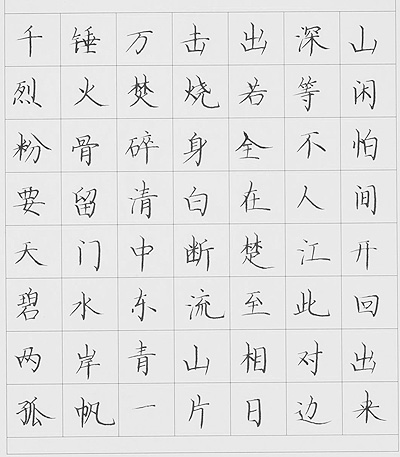 千锤万击出深山
烈火焚烧若等闲
粉骨碎身全不怕
要留清白在人间
天门中断楚江开
碧水东流至此回
两岸青山相对出
孤帆一片日边来